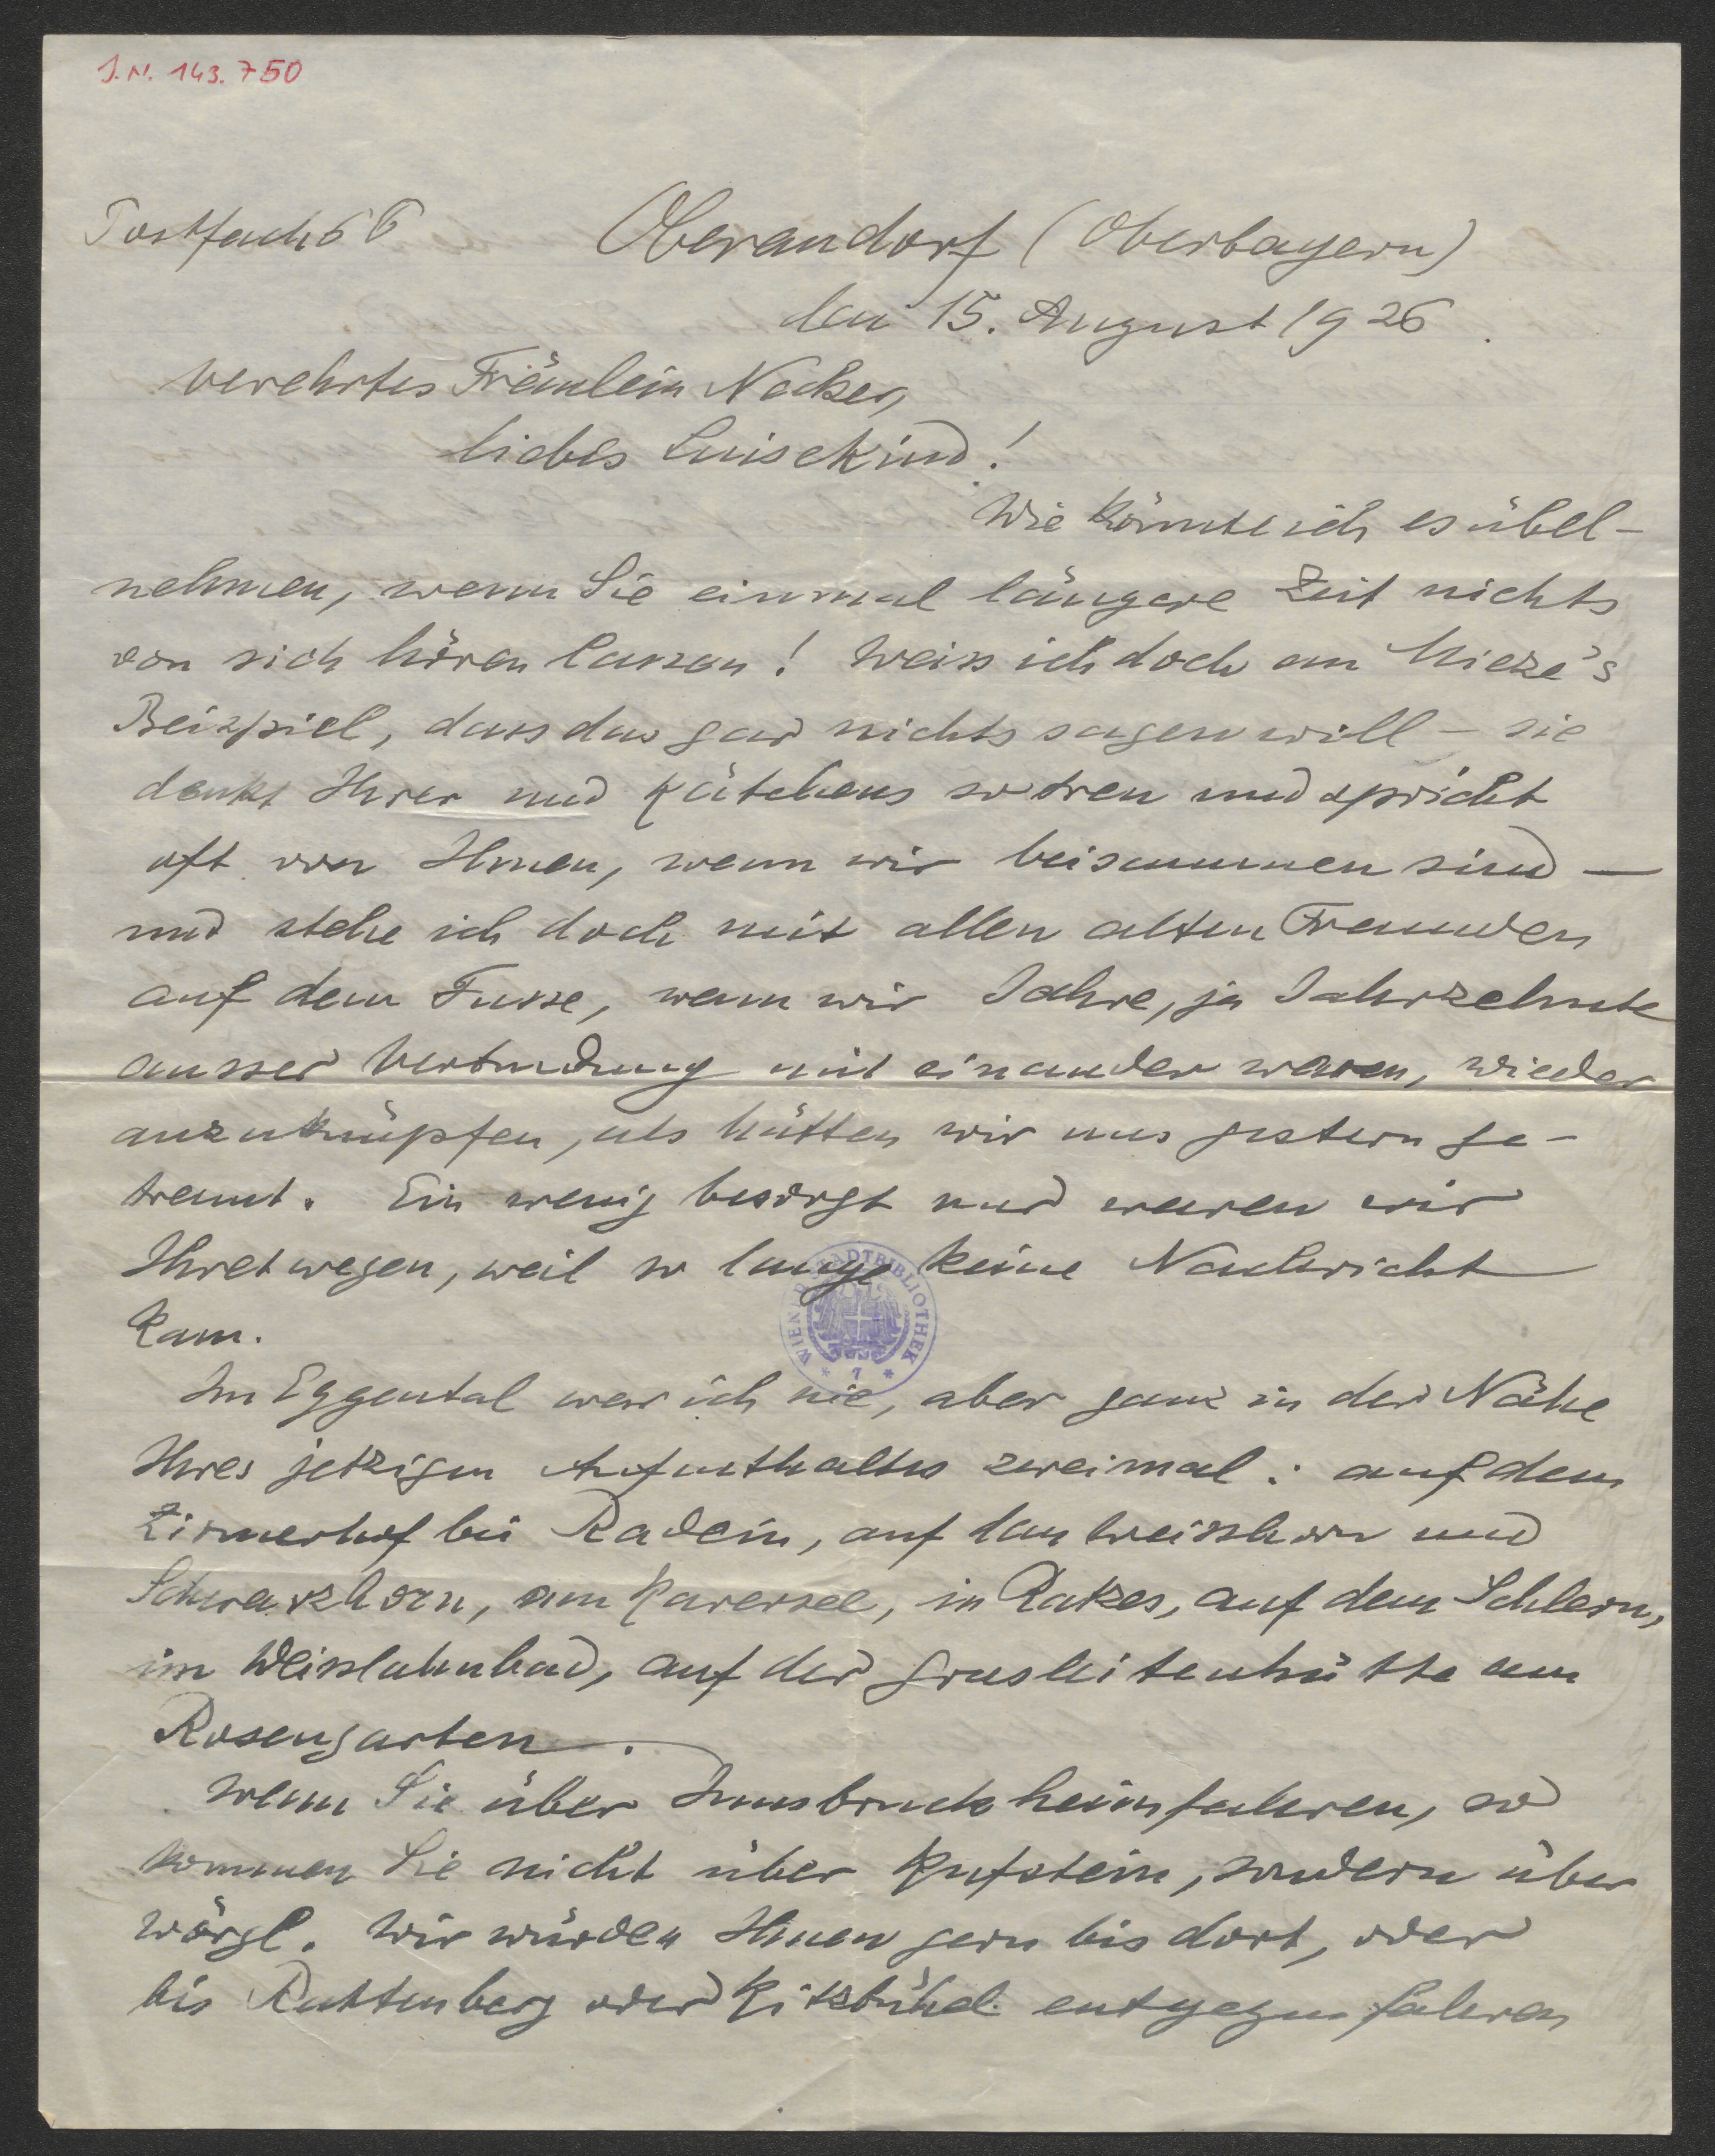 J.N. 143.750
Postfach 66 Oberaudorf (Oberbayern)
den 15. August 1926.
Verehrtes Fräulein Necker,
liebes Luisekind!
Wie könnte ich es übel-
nehmen, wenn Sie einmal längere Zeit nichts
von sich hören lassen! Weiss ich doch an Mieze's
Beispiel, dass das gar nichts sagen will – sie
denkt Ihrer und Kätchens so treu und spricht
oft von Ihnen, wenn wir beisammen sind —
und stehe ich doch mit allen alten Freunden
auf dem Fusse, wenn wir Jahre, ja Jahrzehnte
ausser Verbindung mit einander waren, wieder
anzuknüpfen, als hätten wir uns gestern ge-
trennt. Ein wenig besorgt nur waren wir
Ihretwegen, weil so lange keine Nachricht
kam.
WIENER STADTBIBLIOTHEK
* 7 *
Im Eggental war ich nie, aber ganz in der Nähe
Ihres jetzigen Aufenthaltes zweimal: auf dem
Zirmerhof bei Radein, auf dem Weisshorn und
Schwarzhorn, am Karersee, in Ratzes, auf dem Schlern,
im Weisslahnbad, auf der Grasleitenhütte am
Rosengarten.
Wenn Sie über Innsbruck heimfahren, so
kommen Sie nicht über Kufstein, sondern über
Wörgl. Wir würden Ihnen gern bis dort, oder
bis Rattenberg oder Kitzbühel entgegenfahren